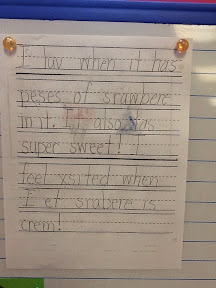 I luv when it has
peses of srawbere
in it. It also has
super sweet! I
feel xsited when
I et srabere is
crem!